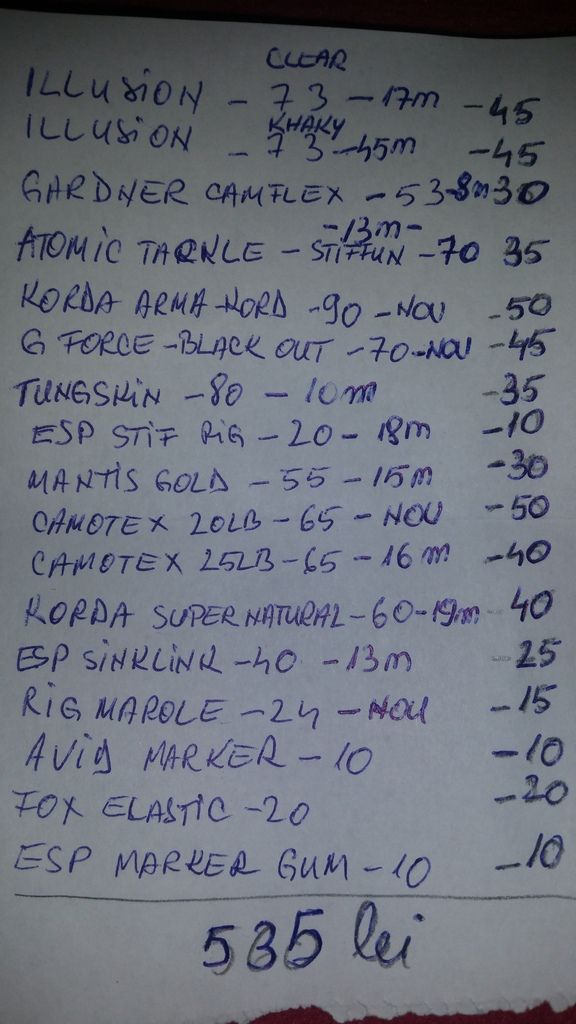 CLEAR
ILLUSION - 73 - 17m - 45
KHAKY
ILLUSION - 73 - 45m - 45
GARDNER CAMFLEX - 53 - 8m 30
- 13m -
ATOMIC TACKLE - STIFFUN - 70 35
KORDA ARMA-KORD - 90 - NOU - 50
G FORCE - BLACK OUT - 70 - NOU - 45
TUNGSKIN - 80 - 10m - 35
ESP STIF RIG - 20 - 18m - 10
MANTIS GOLD - 55 - 15m - 30
CAMOTEX 20LB - 65 - NOU - 50
CAMOTEX 25LB - 65 - 16m - 40
KORDA SUPERNATURAL - 60 - 19m - 40
ESP SINKLINK - 40 - 13m - 25
RIG MAROLE - 24 - NOU - 15
AVID MARKER - 10 - 10
FOX ELASTIC - 20 - 20
ESP MARKER GUM - 10 - 10
535 lei